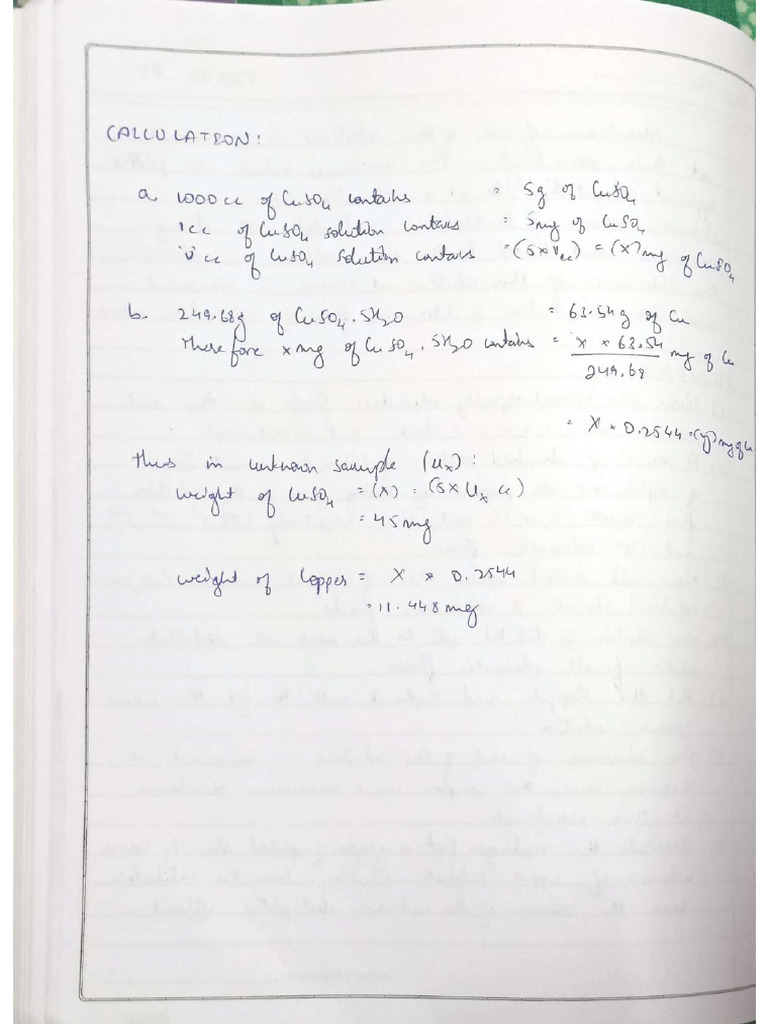 CALCULATION:
a. 1000cc of CuSO4 contains = 5g of CuSO4
1cc of CuSO4 solution contains = 5mg of CuSO4
'V' cc of CuSO4 solution contains = (5×Vcc) = (X) mg of CuSO4
b. 249.68g of CuSO4.5H2O = 63.54g of Cu
Therefore x mg of CuSO4.5H2O contains = x × 63.54 / 249.68 mg of Cu
= X × 0.2544 = (y) mg of Cu
Thus in unknown sample (Ux):
weight of CuSO4 = (X) = (5×Ux cc)
= 45mg
weight of Copper = X × 0.2544
= 11.448mg